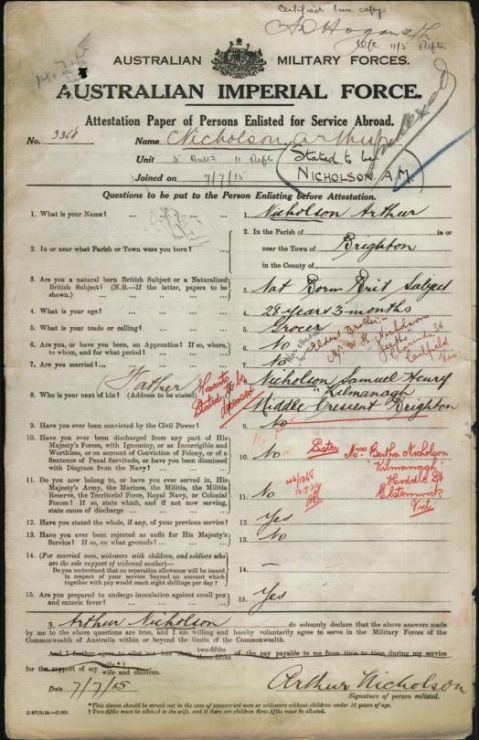 Certified true copy.
AUSTRALIAN MILITARY FORCES.
AUSTRALIAN IMPERIAL FORCE.
Attestation Paper of Persons Enlisted for Service Abroad.
No. 3368 Name Nicholson Arthur
Indexed
Unit 5 11 Rfts Stated to be
Joined on 7/7/15 NICHOLSON A.M.
Questions to be put to the Person Enlisting before Attestation.
1. What is your Name? 1. Nicholson Arthur
2. In or near what Parish or Town were you born? 2. In the Parish of in or
near the Town of Brighton
in the County of
3. Are you a natural born British Subject or a Naturalized
British Subject? (N.B.—If the letter, papers to be
shown.) 3. Nat Born Brit Subject
4. What is your age? 4. 28 years 3 months
5. What is your trade or calling? 5. Grocer
6. Are you, or have you been, an Apprentice? If so, where,
to whom, and for what period? 6. No
Elder Brother
Mr W. H. Nicholson
Caulfield
Vic
7. Are you married? 7. No
8. Who is your next of kin? (Address to be stated) Father
Parents
Stated to be
deceased
8. Nicholson Samuel Henry
"Kilmanagh"
Middle Crescent Brighton
9. Have you ever been convicted by the Civil Power? 9. No
10. Have you ever been discharged from any part of His
Majesty's Forces, with Ignominy, or as Incorrigible and
Worthless, or on account of Conviction of Felony, or of a
Sentence of Penal Servitude, or have you been dismissed
with Disgrace from the Navy? 10. No
Sister Miss Bertha Nicholson
Kilmanagh
Elsternwick
Vict
11. Do you now belong to, or have you ever served in, His
Majesty's Army, the Marines, the Militia, the Militia
Reserve, the Territorial Force, Royal Navy, or Colonial
Forces? If so, state which, and if not now serving,
state cause of discharge 11. No
12. Have you stated the whole, if any, of your previous service? 12. Yes
13. Have you ever been rejected as unfit for His Majesty's
Service? If so, on what grounds? 13. No
14. (For married men, widowers with children, and soldiers who
are the sole support of widowed mother)—
Do you understand that no separation allowance will be issued
in respect of your service beyond an amount which
together with pay would reach eight shillings per day? 14. —
15. Are you prepared to undergo inoculation against small pox
and enteric fever? 15. Yes
I, Arthur Nicholson do solemnly declare that the above answers made
by me to the above questions are true, and I am willing and hereby voluntarily agree to serve in the Military Forces of the
Commonwealth of Australia within or beyond the limits of the Commonwealth.
And I further agree to allot not less than two-fifths
three-fifths of the pay payable to me from time to time during my service
for the support of my wife
wife and children.
Date 7/7/15 Arthur Nicholson
Signature of person enlisted.
*This clause should be struck out in the case of unmarried men or widowers without children under 18 years of age.
†Two-fifths must be allotted to the wife, and if there are children three fifths must be allotted.